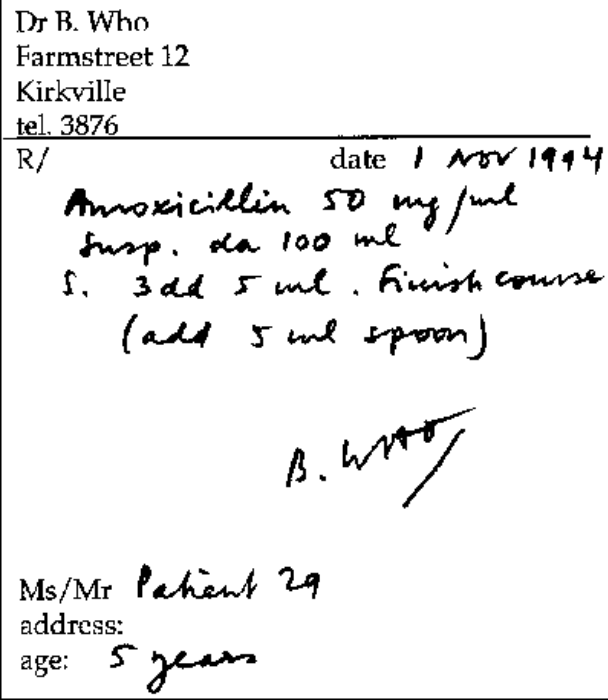 Dr B. Who
Farmstreet 12
Kirkville
tel. 3876
R/ date 1 Nov 1994
Amoxicillin 50 mg/ml
Susp. da 100 ml
S. 3dd 5 ml. Finish course
(add 5 ml spoon)
B. WHO
Ms/Mr Patient 29
address:
age: 5 years